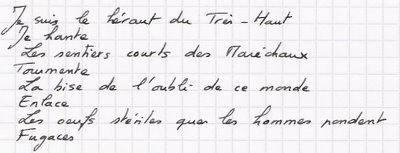 Je suis le héraut du Très-Haut
Je hante
Les sentiers courts des Maréchaux
Tourmente
La bise de l'oubli de ce monde
Enlace
Les oeufs stériles que les hommes pondent
Fugaces